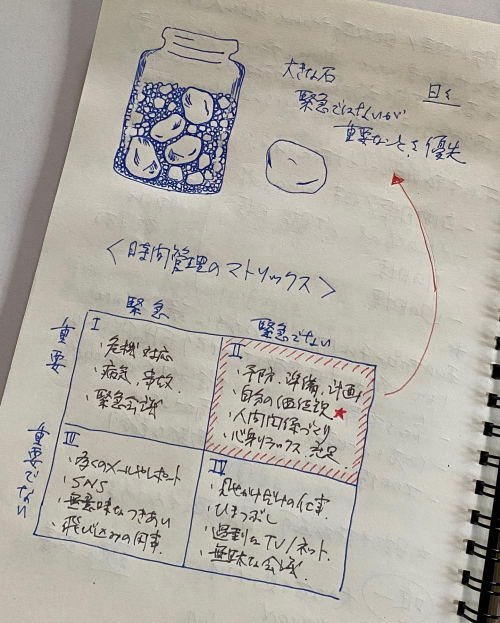 大きな石
日々
緊急ではないが
重要なことを優先
<時間管理のマトリックス>
緊急
緊急でない
重要
I
・危機対応
・病気、事故
・緊急会議
II
・予防、準備、計画
・自分の価値観
・人間関係づくり
・心身リラックス
重要でない
III
・多くのメールやレポート
・SNS
・無意味なつきあい
・飛び込みの用事
IV
・見せかけだけの仕事
・ひまつぶし
・過剰なTV/ネット
・無駄な会議